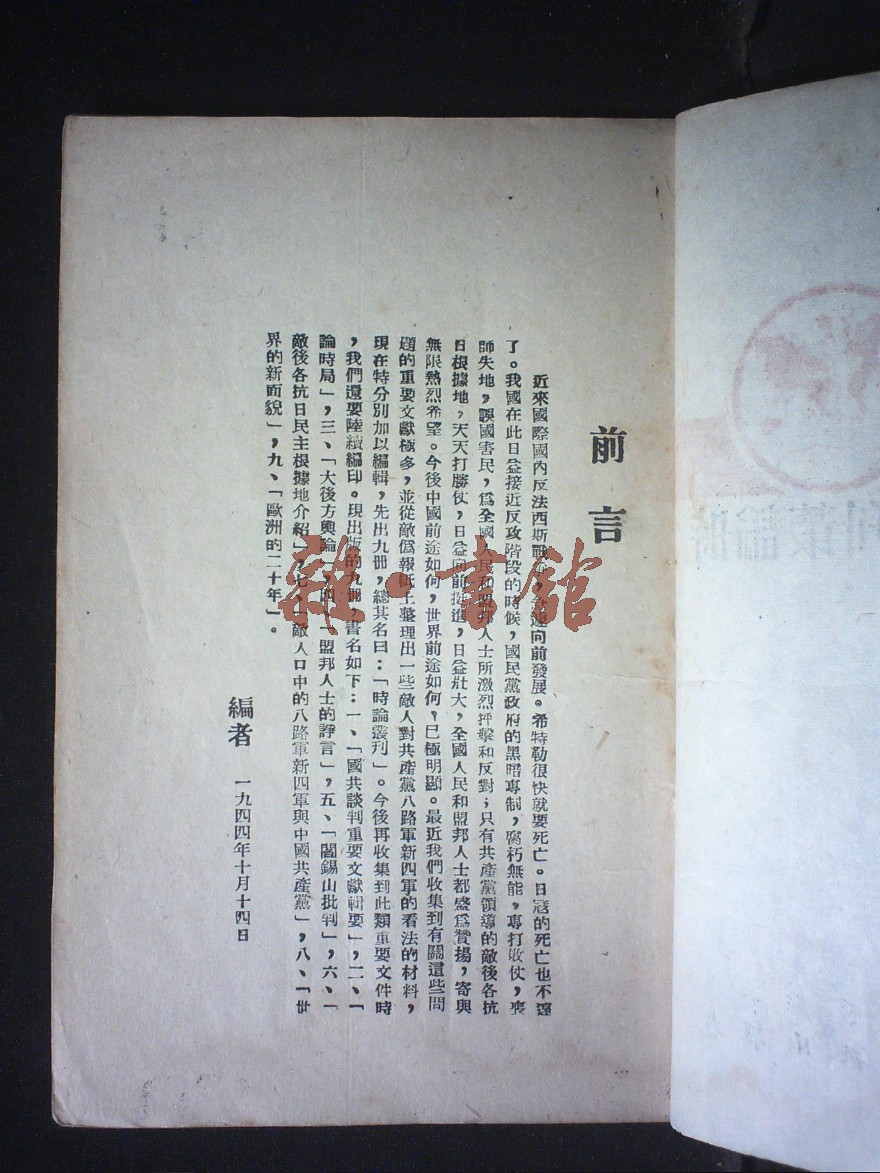 前言
近來國際國內反法西斯戰爭，急速向前發展。希特勒很快就要死亡。日寇的死亡也不遠
了。我國在此日益接近反攻階段的時候，國民黨政府的黑暗專制，腐朽無能，專打敗仗，喪
師失地，誤國害民，爲全國人民和盟邦人士所激烈抨擊和反對；只有共產黨領導的敵後各抗
日根據地，天天打勝仗，日益向前挺進，日益壯大，全國人民和盟邦人士都盛爲贊揚，寄與
無限熱烈希望。今後中國前途如何，世界前途如何，已極明顯。最近我們收集到有關這些問
題的重要文獻極多，並從敵僞報紙上整理出一些敵人對共產黨八路軍新四軍的看法的材料，
現在特分別加以編輯，先出九冊，總其名曰：「時論叢刊」。今後再收集到此類重要文件時
，我們還要陸續編印。現出版的九冊，書名如下：一、「國共談判重要文獻輯要」，二、「
論時局」，三、「大後方輿論」，四、「盟邦人士的諍言」，五、「閻錫山批判」，六、「
敵後各抗日民主根據地介紹」，七、「敵人口中的八路軍新四軍與中國共產黨」，八、「世
界的新面貌」，九、「歐洲的二十年」。
編者　一九四四年十月十四日
雜·書館